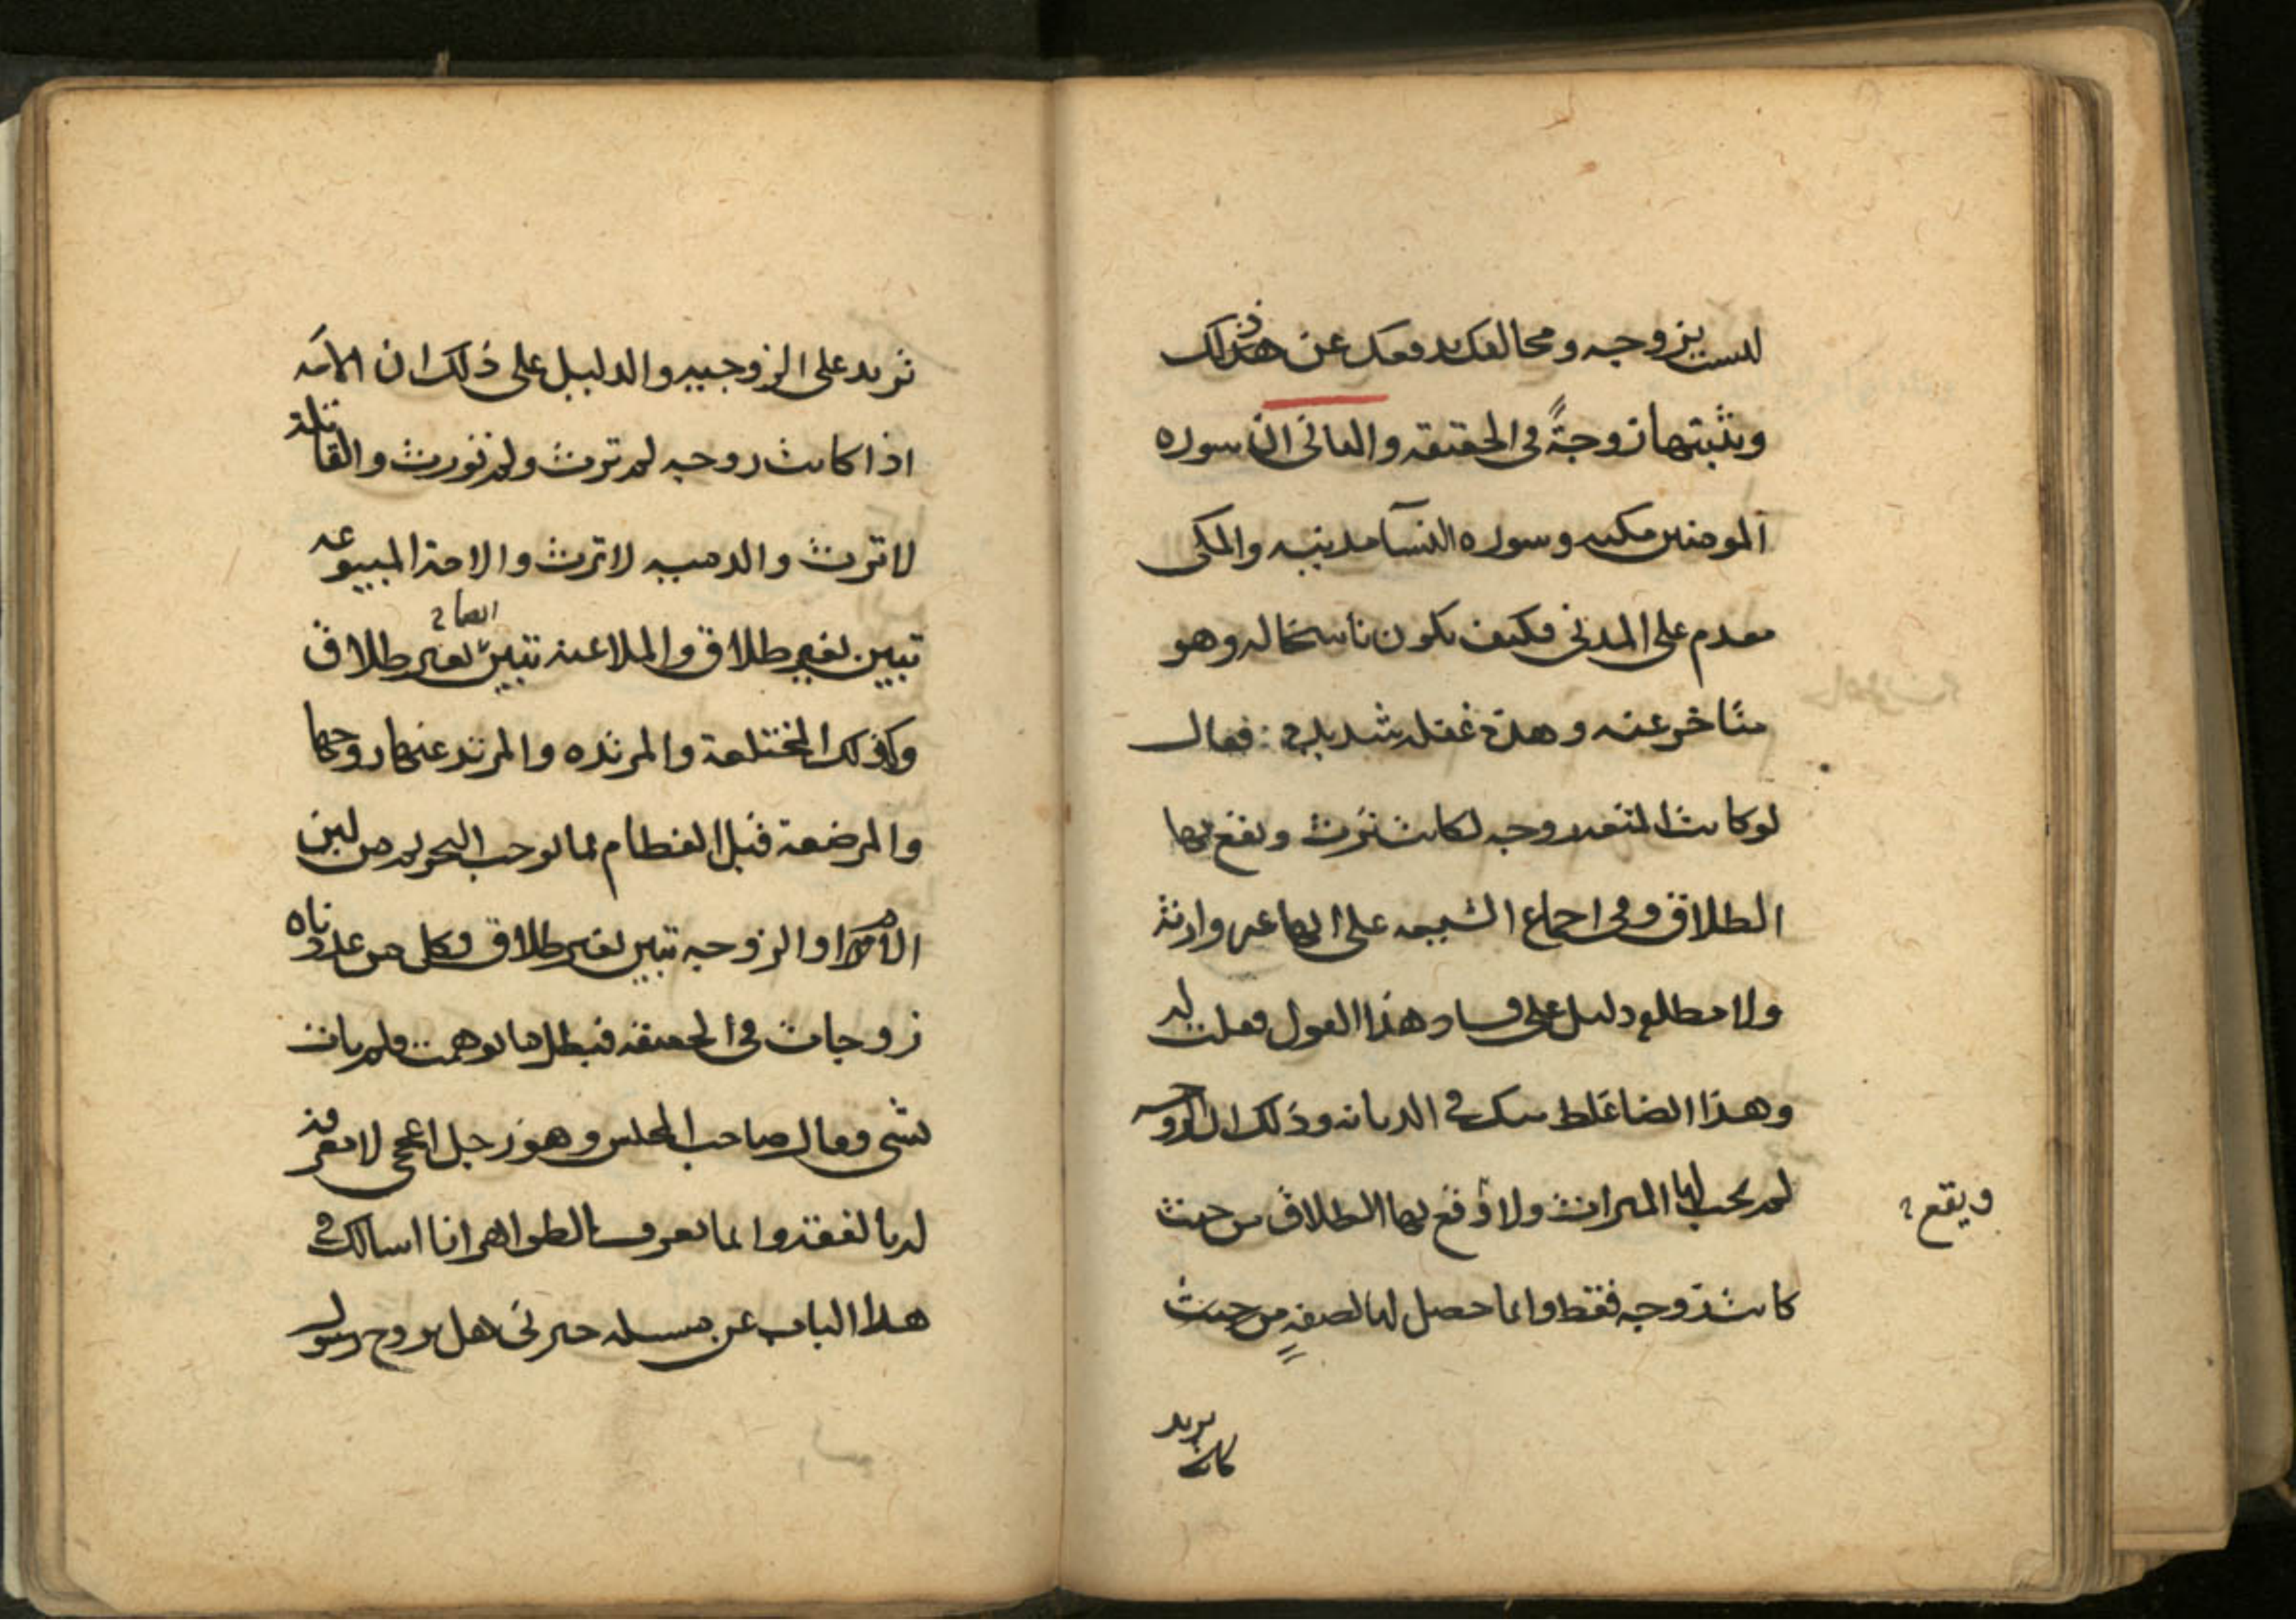 ليست بزوجه ومخالفك يدفعك عن ذلك
ويثبتها زوجةً في الحقيقه والثاني ان سوره
المومنين مكيه وسوره النسآ مدنيه والمكي
مقدم على المدني فكيف يكون ناسخا له وهو
متاخر عنه وهذه غفله شديده : فقال
لو كانت المتعه زوجه لكانت ترث ويقع بها
الطلاق وفي اجماع الشيعه على انها غير وارثه
ولا مطلقه دليل على فساد هذا القول فقلت له
وهذا ايضا غلط منك في الديانه وذلك ان الزوجه
لم يجب لها الميراث ولا وقع بها الطلاق من حيث
ويقع
كانت زوجه فقط وانما حصل لها لصفةٍ من حيث
تزيد
كانت
تزيد على الزوجيه والدليل على ذلك ان الامه
اذا كانت زوجه لم ترث ولم تورث والقاتلة
لا ترث والذميه لا ترث والامة المبيوعه
تبين بغير طلاق والملاعنه تبين ايضا بغير طلاق
وكذلك المختلعة والمرتده والمرتد عنها زوجها
والمرضعة قبل الفطام بما يوجب التحريم من لبن
الام او الزوجه تبين بغير طلاق وكل من عددناه
زوجات في الحقيقه فبطل ما توهمت فلم يات
بشي فقال صاحب المجلس وهو رجل اعجمي لا معرفة
له بالفقه وانما يعرف الظواهر انا اسالك في
هذا الباب عن مسله خبرني هل تزوج رسول